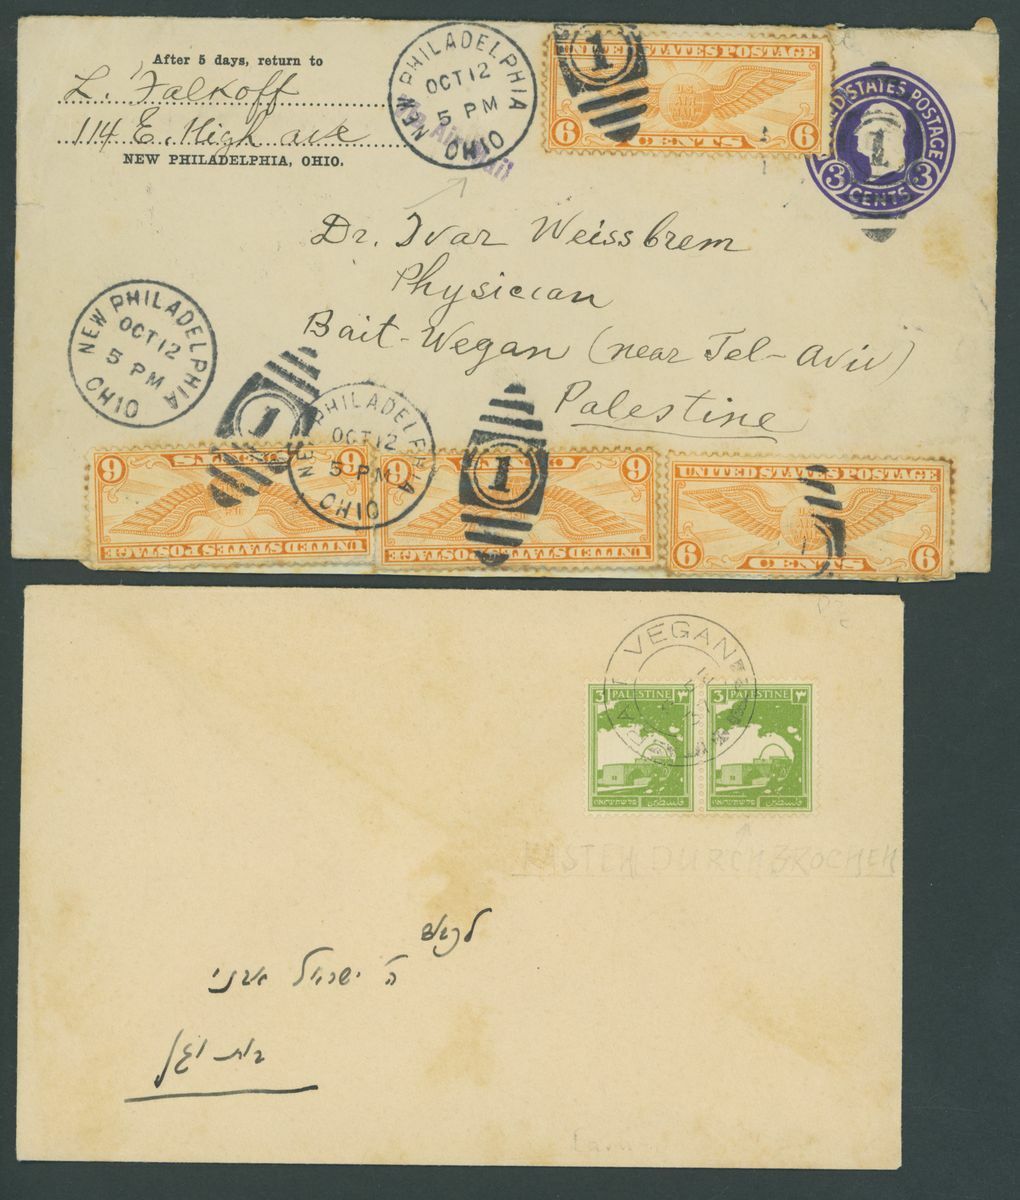 After 5 days, return to
L. Falkoff
114 E. High ave
NEW PHILADELPHIA, OHIO.
NEW PHILADELPHIA
OCT 12
5 PM
OHIO
Via Air Mail
1
UNITED STATES POSTAGE
U.S. AIR MAIL
6 CENTS 6
UNITED STATES POSTAGE
1
3 CENTS 3
Dr. Ivar Weissbrem
Physician
Bait-Wegan (near Tel-Aviv)
Palestine
NEW PHILADELPHIA
OCT 12
5 PM
OHIO
1
NEW PHILADELPHIA
OCT 12
5 PM
OHIO
1
6 CENTS 6
UNITED STATES POSTAGE
6 CENTS 6
UNITED STATES POSTAGE
UNITED STATES POSTAGE
6 CENTS 6
BAIT VEGAN
37
3 PALESTINE ٣
فلسطين פלשתינה א״י
3 PALESTINE ٣
فلسطين פלשתינה א״י
KASTEN DURCHBROCHEN
לכבוד
ה' ישראל
בית וגן